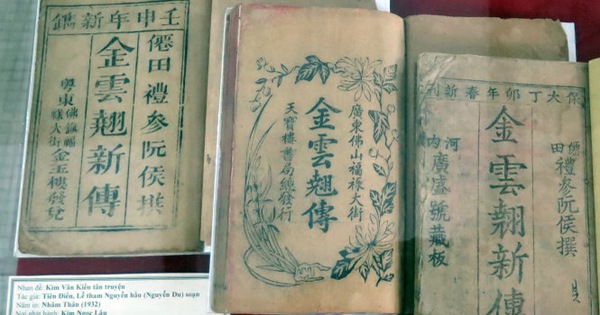 壬申年新鐫
僊田禮參阮侯撰
金雲翹新傳
粵東佛鎮福祿大街金玉樓發兌
廣東佛山福祿大街
金雲翹傳
天寶樓書局總發行
保大丁卯年春新刊
僊田禮參阮侯撰
金雲翹新傳
河內廣盛號藏板
Nhan đề: Kim Vân Kiều tân truyện
Tác giả: Tiên Điền, Lễ tham Nguyễn hầu (Nguyễn Du) soạn
Năm in: Nhâm Thân (1932)
Nơi phát hành: Kim Ngọc Lâu